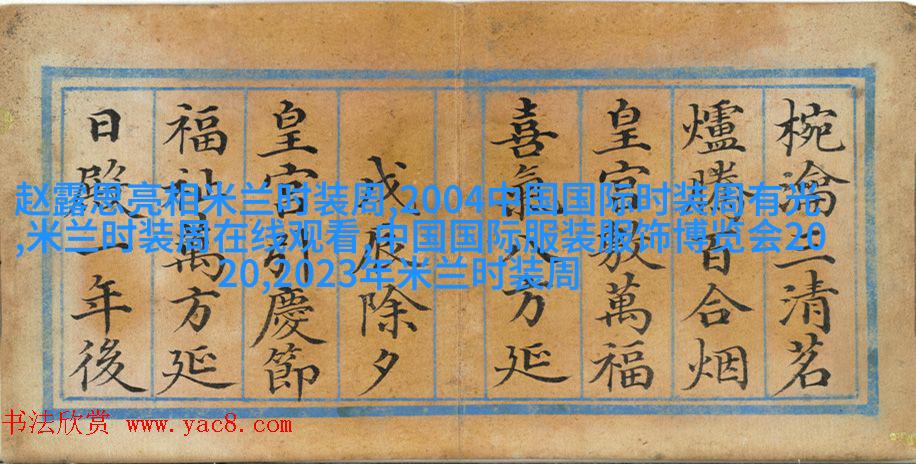 椀瀹三清茗
爐百合烟
皇宫敷萬福
喜氣八方延
戊辰除夕
皇宫引慶節
福祉萬方延
日一年後
赵露思亮相米兰时装周,2004中国国际时装周有光
,米兰时装周在线观看,中国国际服装服饰博览会20
20,2023年米兰时装周
书法欣赏 www.yac8.com